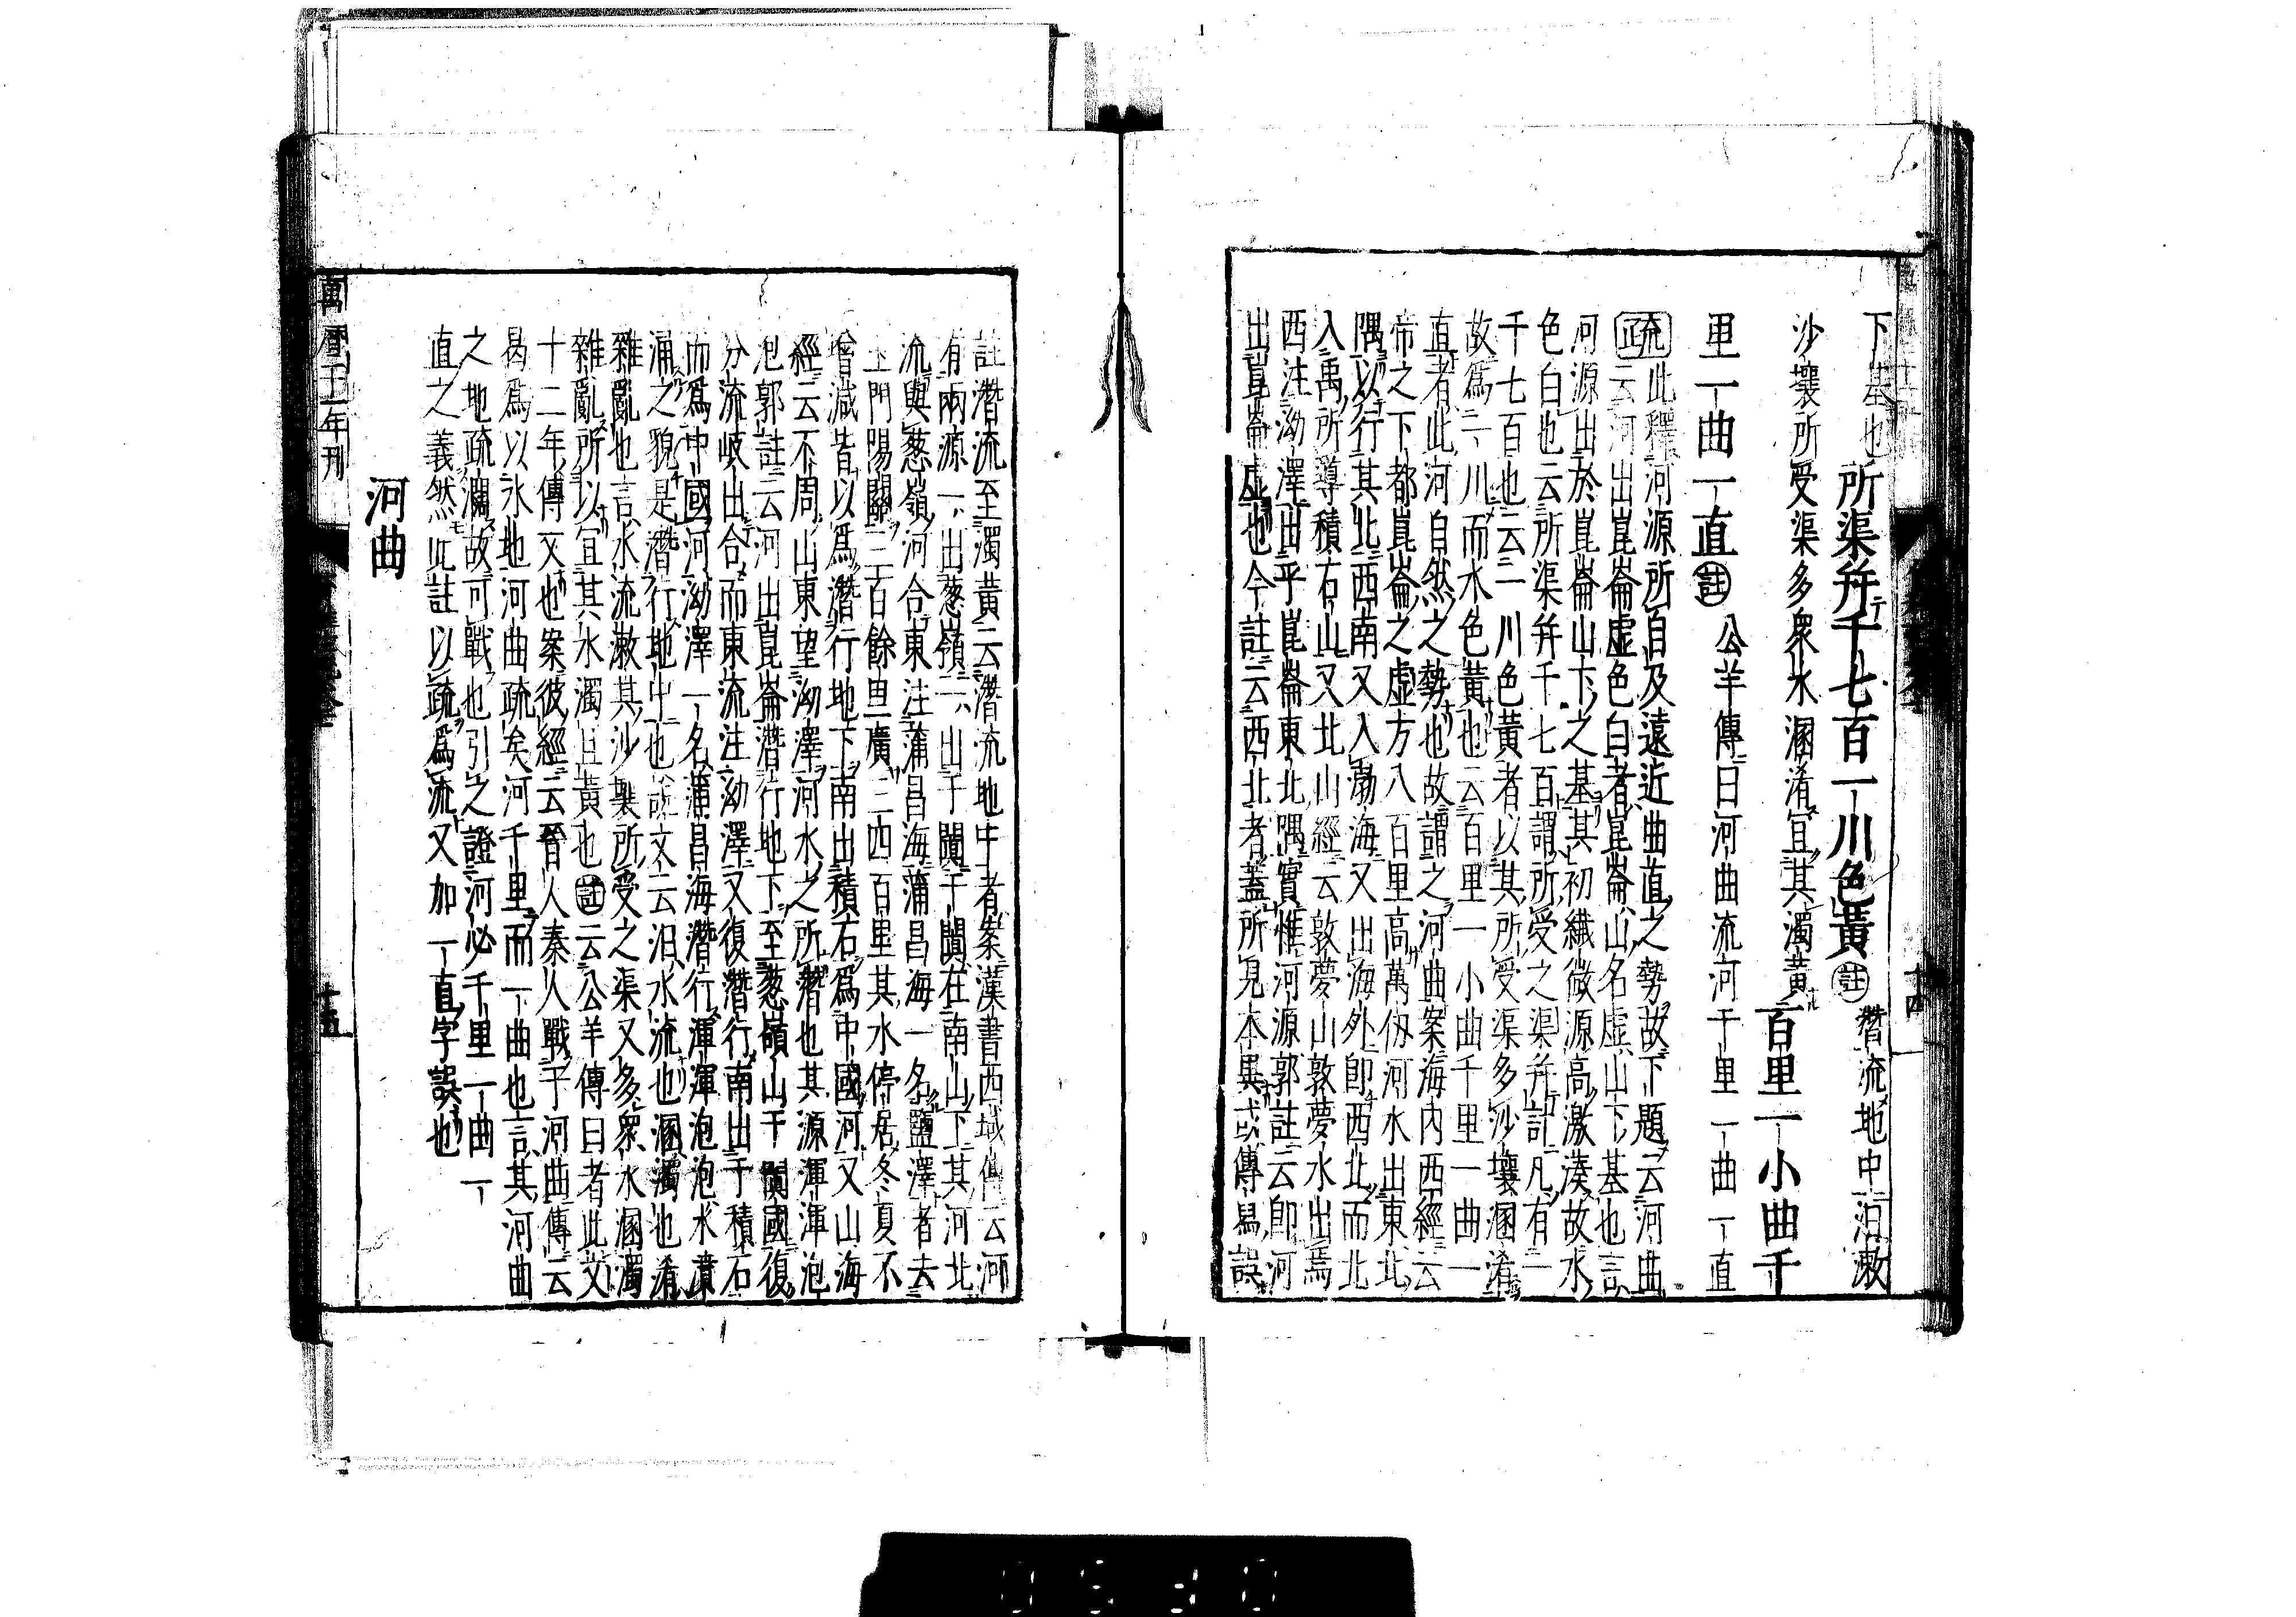 下基也所渠幷千七百一川色黃註潛流地中汩漱
沙壤所受渠多衆水溷淆宜其濁黃百里一小曲千
里一曲一直註公羊傳曰河曲流河千里一曲一直
疏此釋河源所自及遠近曲直之勢故下題云河曲
正云河出崑崙虛色白者崑崙山名虛山下基也言
河源出於崑崙山下之基其初纖微源高激湊故水
色白也云所渠幷千七百謂所受之渠幷計凡有一
千七百也云一川色黃者以其所受渠多沙壤溷淆
故爲一川而水色黃也云百里一小曲千里一曲一
直者此河自然之勢也故謂之河曲案海內西經云
帝之下都崑崙之虛方八百里高萬仞河水出東北
隅以行其北西南又入渤海又出海外卽西北而北
入禹所導積石山又北山經云敦薨山敦薨水出焉
西注泑澤出乎崑崙東北隅實惟河源郭註云卽河
出崑崙虛也今註云西北者蓋所見本異或傳寫誤
註潛流至濁黃云潛流地中者案漢書西域傳云河
有兩源一出葱嶺一出于闐于闐在南山下其河北
流與葱嶺河合東注蒲昌海蒲昌海一名鹽澤者去
玉門陽關三百餘里廣三四百里其水停居冬夏不
增減皆以爲潛行地下南出積石爲中國河又山海
經云不周山東望泑澤河水之所潛也其源渾渾泡
泡郭註云河出崑崙潛行地下至葱嶺山于闐國復
分流岐出合而東流注泑澤又復潛行南出于積石
而爲中國河泑澤一名蒲昌海潛行渾渾泡泡水濆
涌之貌是潛行地中也說文云汩水流也溷濁也淆
雜亂也言水流漱其沙壤所受之渠又多衆水溷濁
雜亂所以宜其水濁且黃也註云公羊傳曰者此文
十二年傳文也案彼經云晉人秦人戰于河曲傳云
曷爲以水地河曲疏矣河千里而一曲也言其河曲
之地疏濶故可戰也引之證河必千里一曲一
直之義然此註以疏爲流又加一直字誤也
河曲
萬曆二十一年刊
十四
十五